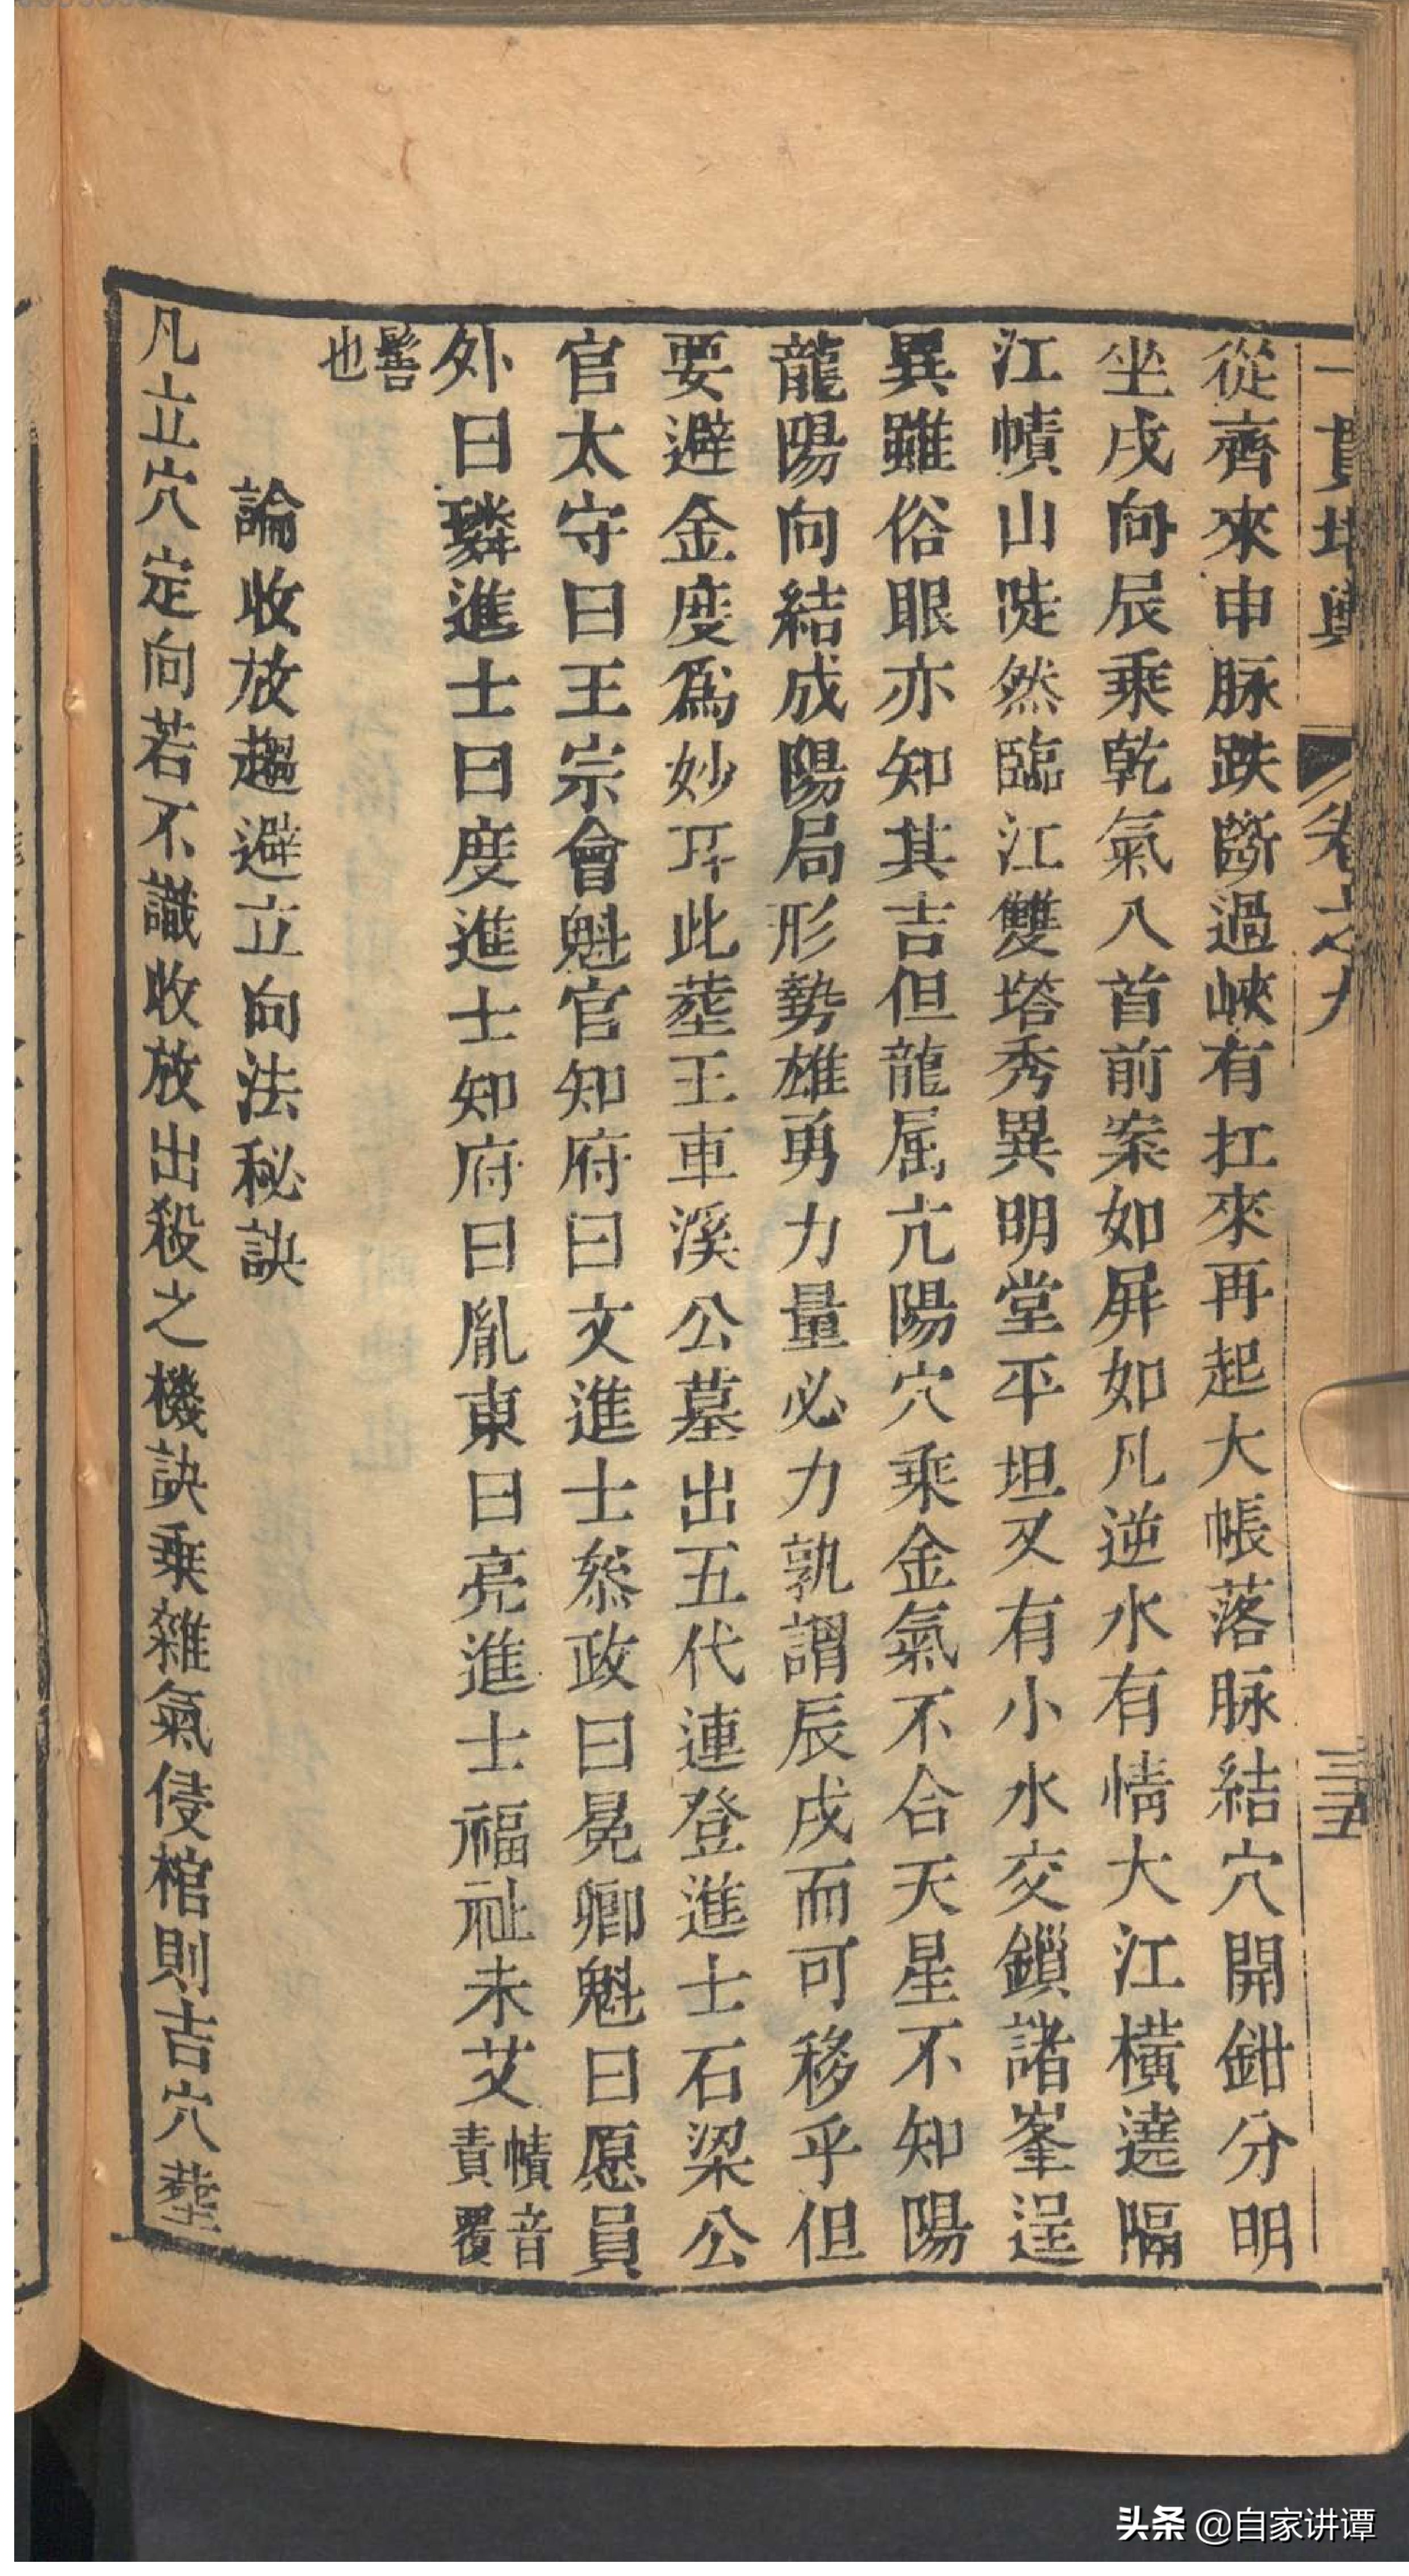 一貫堪輿 卷之九 三五
從齊來申脉跌斷過峽有扛來再起大帳落脉結穴開鉗分明
坐戌向辰乘乾氣入首前案如屏如凡逆水有情大江橫遶隔
江幘山陡然臨江雙塔秀異明堂平坦又有小水交鎖諸峯逞
異雖俗眼亦知其吉但龍屬亢陽穴乘金氣不合天星不知陽
龍陽向結成陽局形勢雄勇力量必力孰謂辰戌而可移乎但
要避金度爲妙耳此塟王車溪公墓出五代連登進士石梁公
官太守曰王宗會魁官知府曰文進士叅政曰冕卿魁曰愿員
外曰璘進士曰度進士知府曰胤東曰亮進士福祉未艾幘音責覆
髻也
論收放趨避立向法秘訣
凡立穴定向若不識收放出殺之機訣乗雜氣侵棺則吉穴塟
头条 @自家讲谭